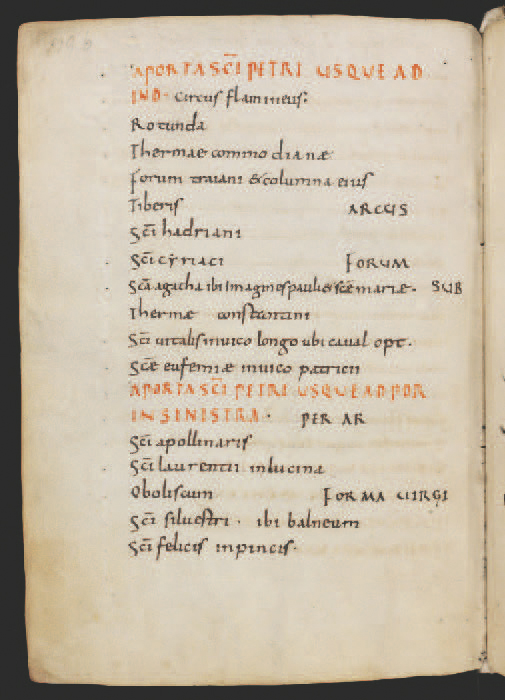 APORTA SC̄I PETRI USQUE AD
IND· Circus flamineus:
Rotunda
Thermae commodianæ
forum traiani & columna eius
Tiberis ARCUS
Sc̄i hadriani
Sc̄i cyriaci FORUM
Sc̄a agatha ibi Imagines pauli & sc̄e mariæ· SUB
Thermæ constantini
Sc̄i uitalis inuico longo ubi caual opt·
Sc̄e eufemiæ inuico patricii
APORTA SC̄I PETRI USQUE AD POR
IN SINISTRA· PER AR
Sc̄i apollinaris
Sc̄i laurentii inlucina
Oboliscum FORMA UIRGI
Sc̄i siluestri· ibi balneum
Sc̄i felicis inpincis·